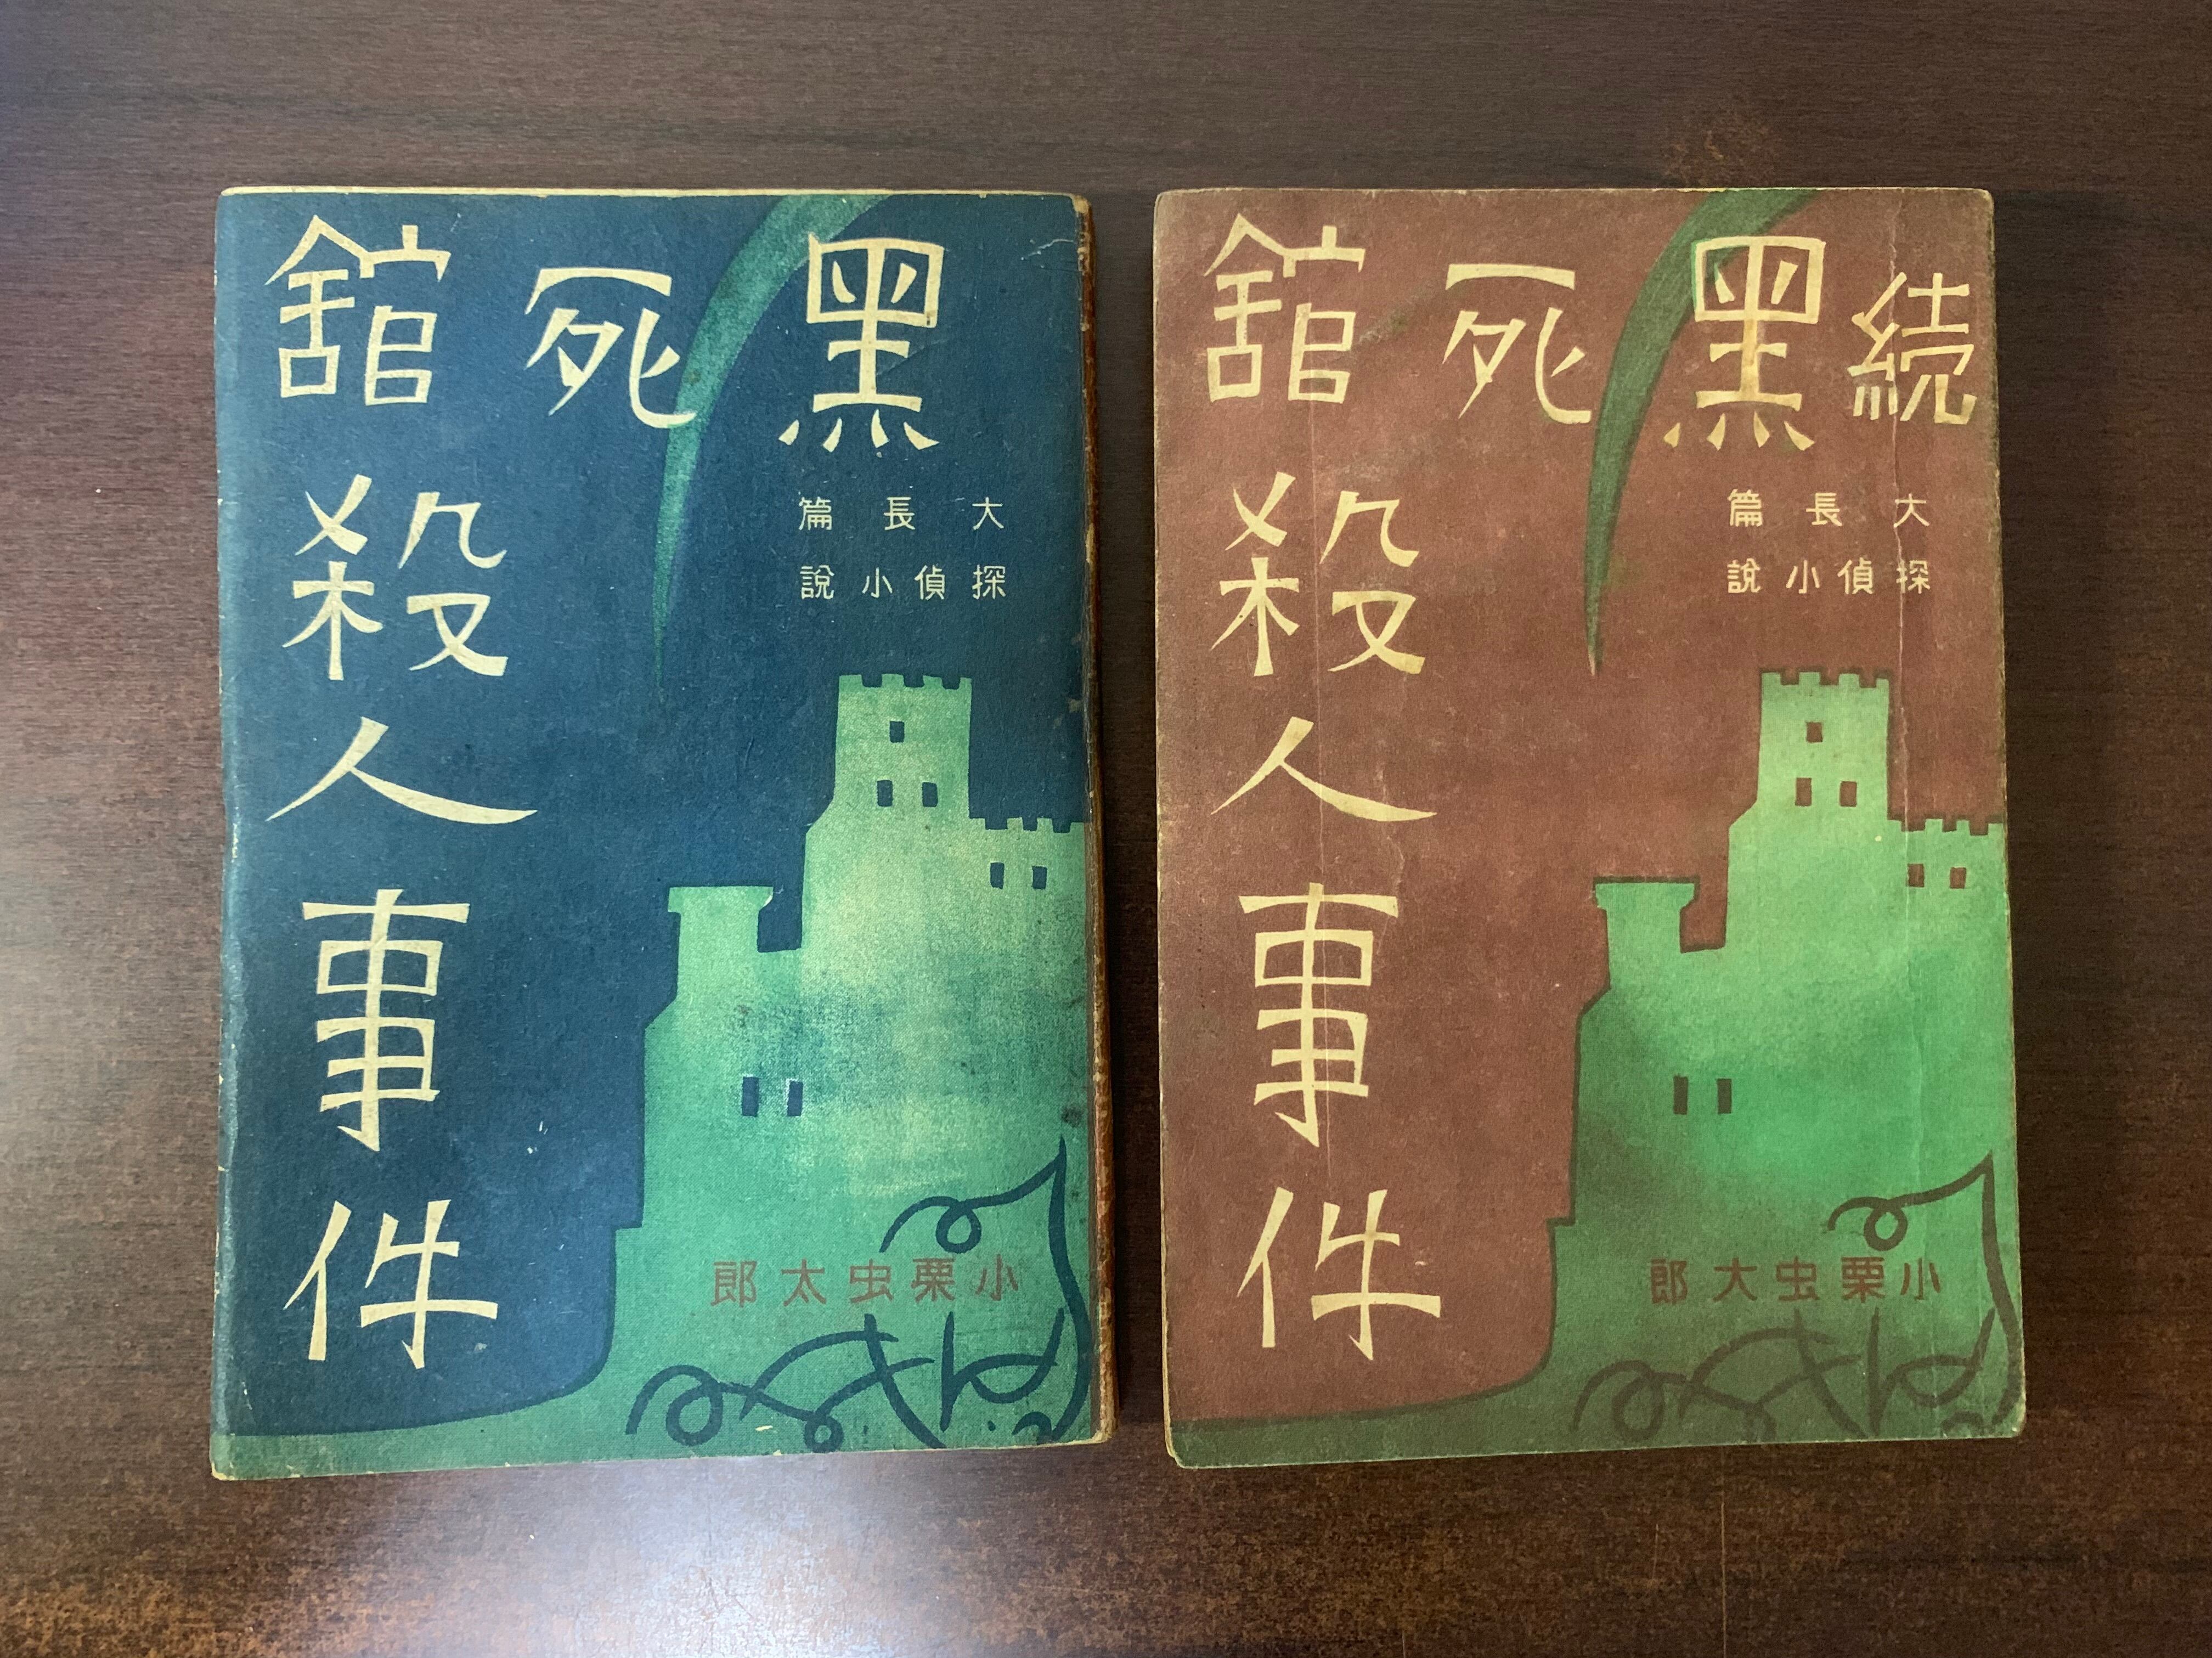 黑死舘殺人事件
大長篇
探偵小說
小栗虫太郎
続黑死舘殺人事件
大長篇
探偵小說
小栗虫大郎